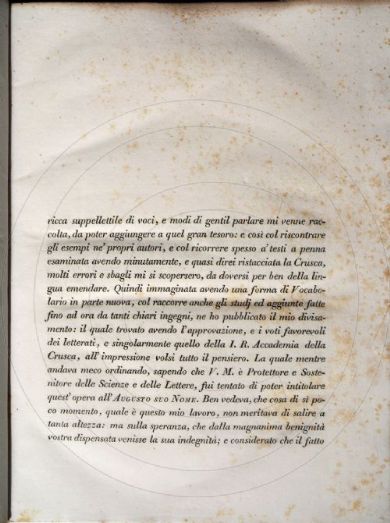 ricca suppellettile di voci, e modi di gentil parlare mi venne rac-
colta, da poter aggiungere a quel gran tesoro: e così col riscontrare
gli esempi ne' propri autori, e col ricorrere spesso a' testi a penna
esaminata avendo minutamente, e quasi direi ristacciata la Crusca,
molti errori e sbagli mi si scopersero, da doversi per ben della lin-
gua emendare. Quindi immaginata avendo una forma di Vocabo-
lario in parte nuova, col raccorre anche gli studj ed aggiunte fatte
fino ad ora da tanti chiari ingegni, ne ho pubblicato il mio divisa-
mento: il quale trovato avendo l'approvazione, e i voti favorevoli
dei letterati, e singolarmente quello della I. R. Accademia della
Crusca, all'impressione volsi tutto il pensiero. La quale mentre
andava meco ordinando, sapendo che V. M. è Protettore e Soste-
nitore delle Scienze e delle Lettere, fui tentato di poter intitolare
quest'opera all'AUGUSTO SUO NOME. Ben vedeva, che cosa di sì po-
co momento, quale è questo mio lavoro, non meritava di salire a
tanta altezza: ma sulla speranza, che dalla magnanima benignità
vostra dispensata venisse la sua indegnità; e considerato che il fatto